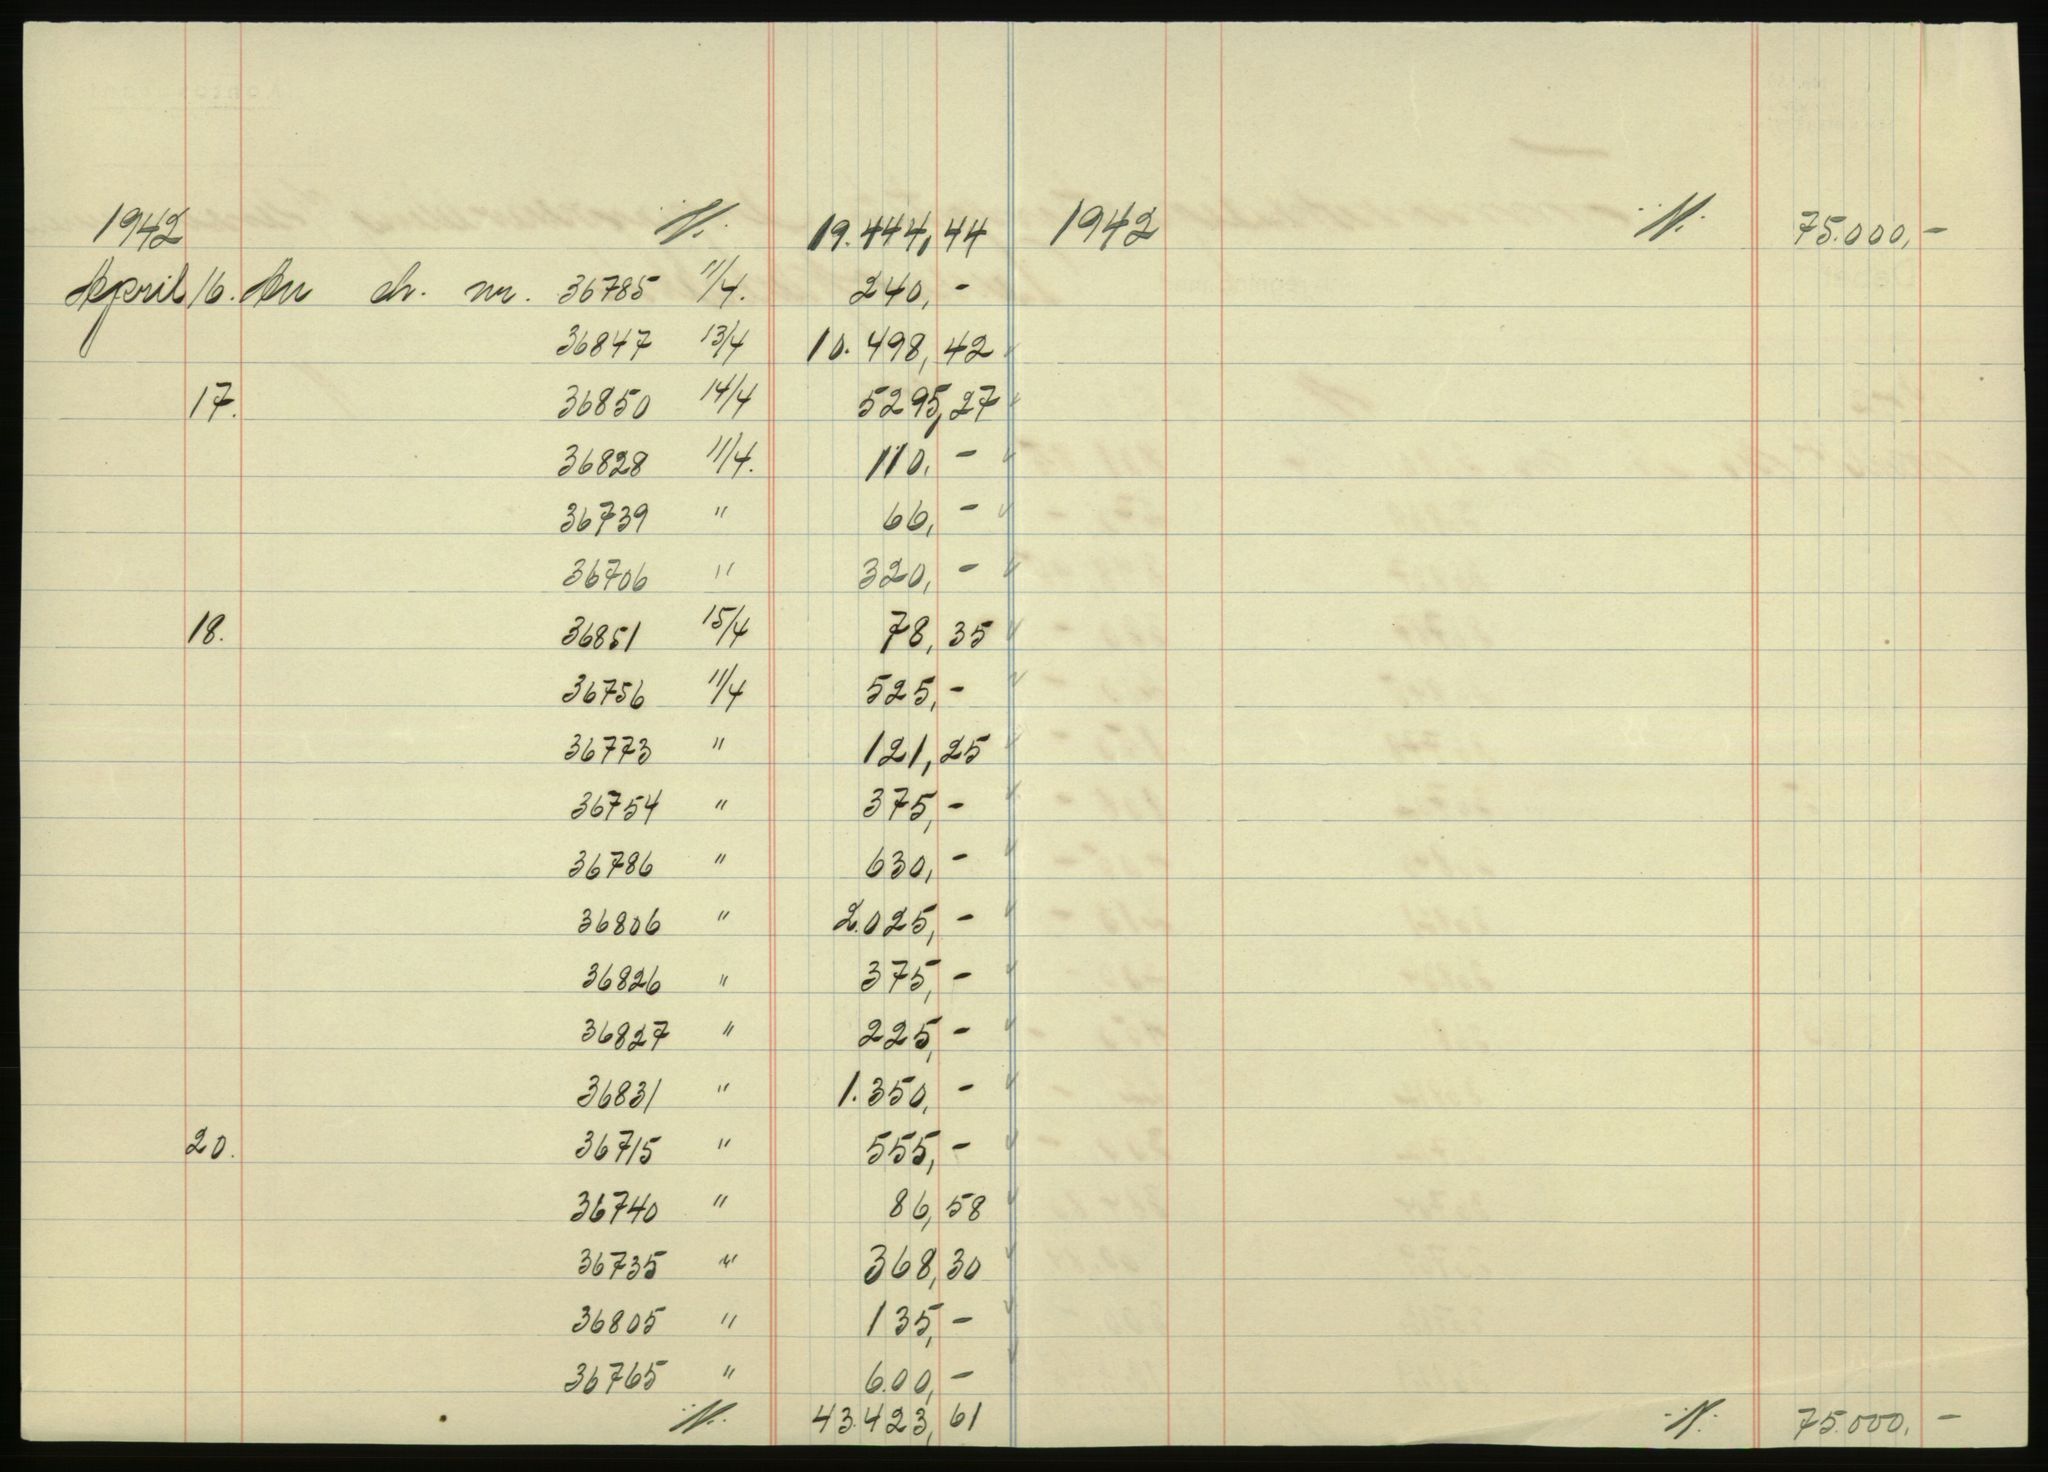 1942 ./. 19.444,44 1942 ./. 75.000,-
April 16. An ch. nr. 36785 11/4. 240,-
36847 13/4 10.498,42
17. 36850 14/4 5295,27
36828 11/4. 110,-
36739 " 66,-
36706 " 320,-
18. 36851 15/4 78,35
36756 11/4 525,-
36773 " 121,25
36754 " 375,-
36786 " 630,-
36806 " 2.025,-
36826 " 375,-
36827 " 225,-
36831 " 1.350,-
20. 36715 " 555,-
36740 " 86,58
36735 " 368,30
36805 " 135,-
36765 " 600,-
./. 43.423,61 ./. 75.000,-